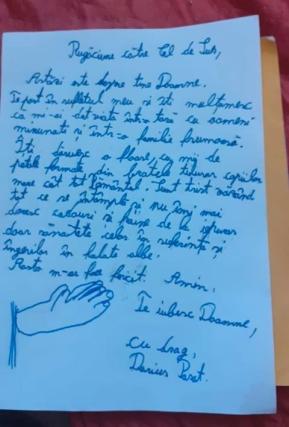 Rugăciune către Cel de Sus,
Astăzi este despre tine Doamne.
Te port în sufletul meu și îți mulțumesc
că mi-ai dat viață într-o țară cu oameni
minunați și într-o familie frumoasă.
Îți dăruiesc o floare, cu mii de
petale formate din brațele tuturor copiilor
mare cât tot pământul. Sunt trist văzând
tot ce se întâmplă și nu îmi mai
doresc cadouri și haine de la iepuraș
doar sănătate celor în suferință și
îngerilor în halate albe.
Asta m-ar face fericit. Amin,
Te iubesc Doamne,
Cu drag,
Darius